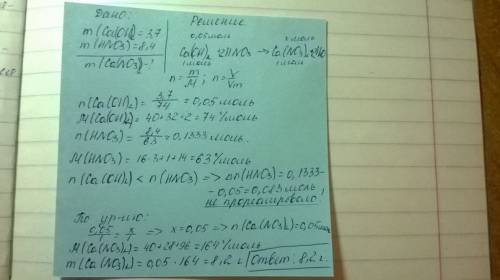 Дано:
m(Ca(OH)2)=3,7
m(HNO3)=8,4
m(Ca(NO3)2)-?
Решение
0,05моль x моль
Ca(OH)2+2HNO3 → Ca(NO3)2+2H2O
1моль 1моль
n=m/M; n=V/Vm
n(Ca(OH)2)=3,7/74=0,05моль
M(Ca(OH)2)=40+32+2=74г/моль
n(HNO3)=8,4/63=0,1333моль.
M(HNO3)=16·3+1+14=63г/моль
n(Ca(OH)2)<n(HNO3) => an(HNO3)=0,1333-
-0,05=0,083моль
не прореагировало!
По ур-ию:
0,05/1=x/1 => x=0,05 => n(Ca(NO3)2)=0,05моль
M(Ca(NO3)2)=40+28+96=164г/моль
m(Ca(NO3)2)=0,05·164=8,2г. Ответ: 8,2г.